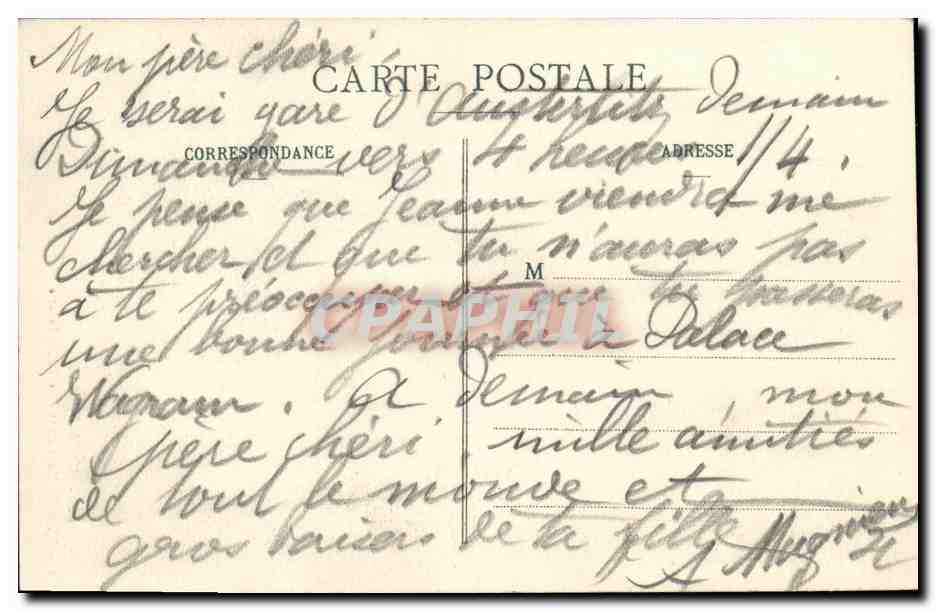 Mon père chéri,
CARTE POSTALE
Je serai gare d'Austerlitz demain
CORRESPONDANCE
ADRESSE
Dimanche vers 4 heures 1/4.
Je pense que Jeanne viendra me
chercher et que tu n'auras pas
M
à te préoccuper et que tu passeras
CPAPHIL
une bonne journée à Palace
Wagram. A demain, mon
père chéri, mille amitiés
de tout le monde et
gros baisers de ta fille